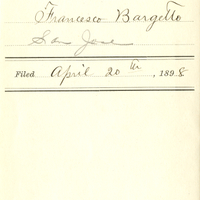 Francesco Bargetto
San Jose
Filed April 20th, 1898